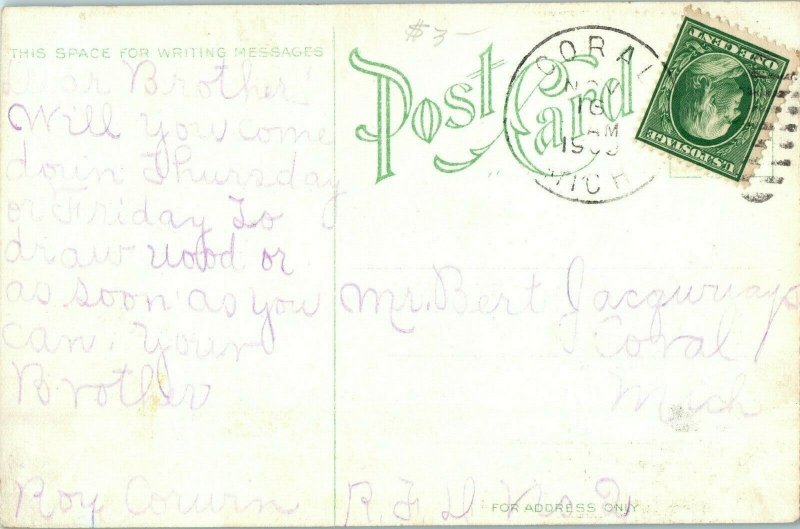 $3-
THIS SPACE FOR WRITING MESSAGES
Dear Brother
Will you come
down Thursday
or Friday To
draw wood or
as soon as you
can. Your
Brother
Roy Corwin
Post Card
CORAL
NOV
16
AM
MICH
U.S. POSTAGE
ONE CENT
Mr. Bert
Coral
Mich
R.F.D. No 2
FOR ADDRESS ONLY